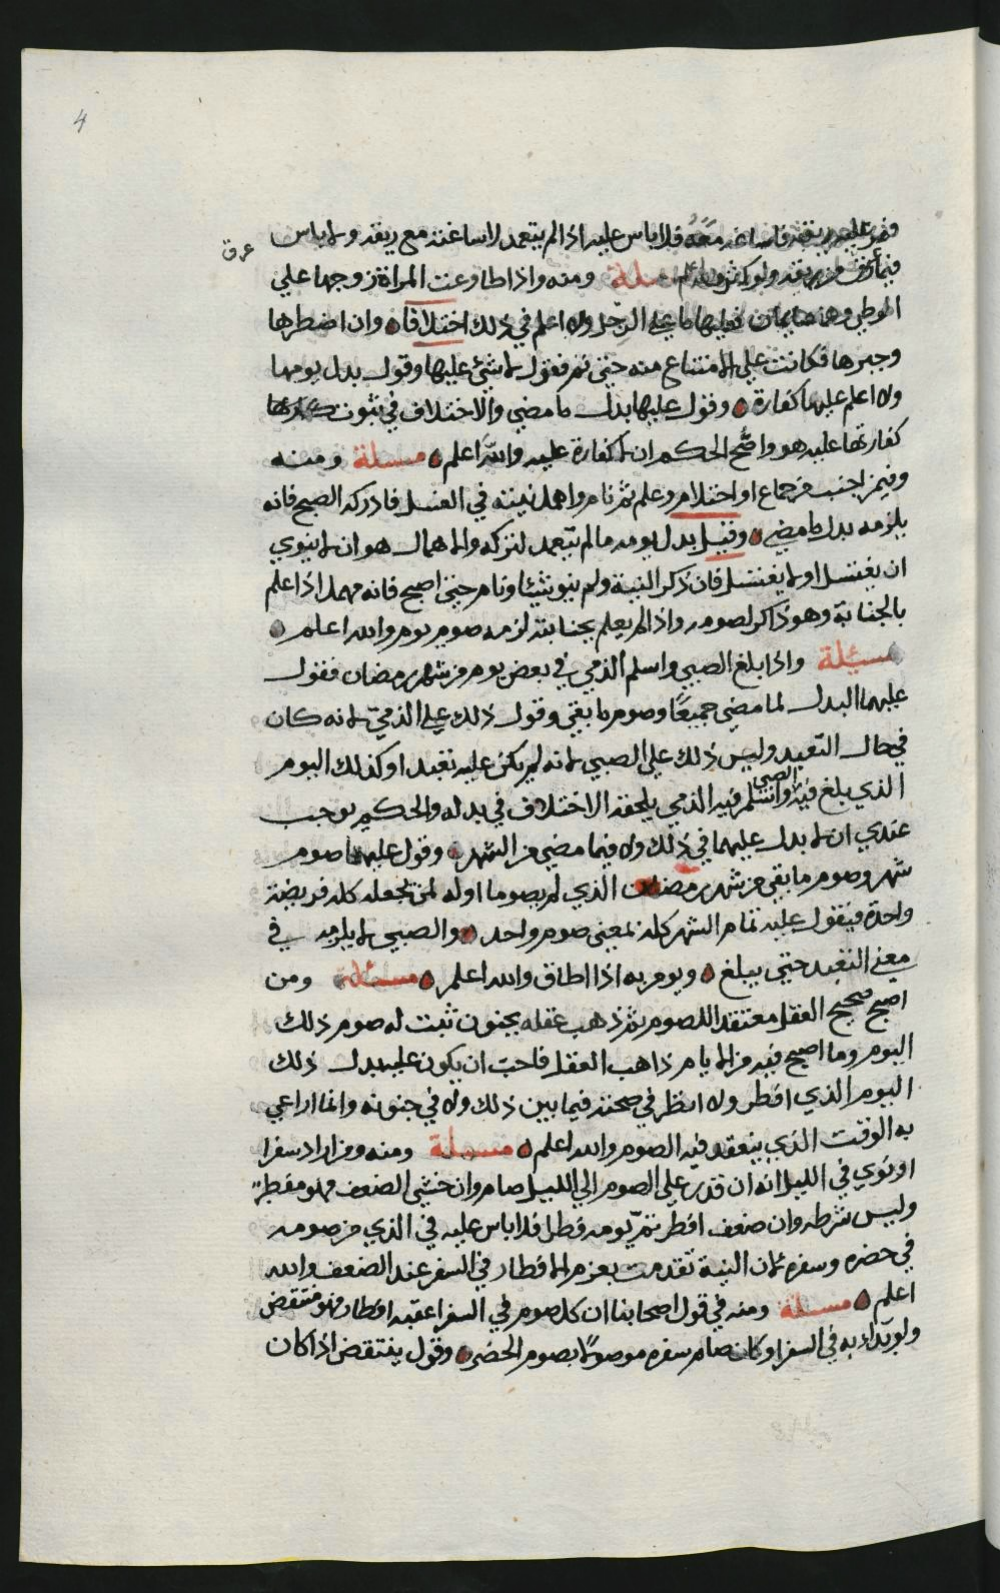 4
عليه ريقه فاساغه معه فلا باس عليه اذا لم يتعمد لاساغته مع ريقه ولا باس
عرق
من ريقه ولو كثر مسئلة ومنه واذا طاوعت المراة زوجها علي
الوطي وهما صايمان فعليها ما علي الرجل ولا اعلم في ذلك اختلافا وان اضطرها
وجبرها فكانت علي الامتناع منه حتي تم فقول لا شئ عليها وقول بدل يومها
ولا اعلم عليها كفارة وقول عليها بدل ما مضي والاختلاف في ثبوت
كفارتها عليه هو واضح الحكم ان لا كفارة عليه والله اعلم مسئلة ومنه
وفيمن اجنب من جماع او احتلام وعلم ثم نام واهمل نيته في الغسل فادركه الصبح فانه
يلزمه بدل ما مضي وقيل بدل يومه ما لم يتعمد لتركه والاهمال هو ان لا ينوي
ان يغتسل او لا يغتسل فان ذكر النية ولم ينو شيئا ونام حتي اصبح فانه مهمل اذا علم
بالجنابة وهو ذاكر لصومه واذا لم يعلم بجنابته لزمه صوم يوم والله اعلم
مسئلة واذا بلغ الصبي واسلم الذمي في بعض يوم من شهر رمضان فقول
عليهما البدل لما مضي جميعًا وصوم ما بقي وقول ذلك علي الذمي لانه كان
في حال التعبد وليس ذلك علي الصبي لانه لم يكن عليه تعبد او كذلك اليوم
الذي بلغ فيه الصبي واسلم فيه الذمي يلحقه الاختلاف في بدله والحكم يوجب
عندي ان لا بدل عليهما في ذلك ولا فيما مضي من الشهر وقول عليهما صوم
شهر وصوم ما بقي من شهر رمضان الذي لم يصوما اوله لمن يجعله كله فريضة
واحدة فيقول عليه تمام الشهر كله لمعني صوم واحد والصبي لا يلزمه في
معني التعبد حتي يبلغ ويومر به اذا اطاق والله اعلم مسئلة ومن
اصبح صحيح العقل معتقد اللصوم ثم ذهب عقله بجنون ثبت له صوم ذلك
اليوم وما اصبح فيه من الايام ذاهب العقل فاحب ان يكون عليه بدل ذلك
اليوم الذي افطر ولا انظر في صحته فيما بين ذلك ولا في جنونه وانما اراعي
به الوقت الذي ينعقد فيه الصوم والله اعلم مسئلة ومنه ومن اراد سفرا
او نوي في الليل انه ان قدر علي الصوم الي الليل صام وان خشي الضعف فهو مفطر
وليس شرطه وان ضعف افطر ثم يومه فطر فلا باس عليه في الذي من صومه
في حضره وسفره لان النية تقدمت بعزم الافطار في السفر عند الضعف والله
اعلم مسئلة ومنه في قول اصحابنا ان كل صوم في السفر اعقبه افطار فهو منتقض
ولو بداء به في السفر او كان صام سفره موصولًا بصوم الحضر وقول ينتقض اذا كان